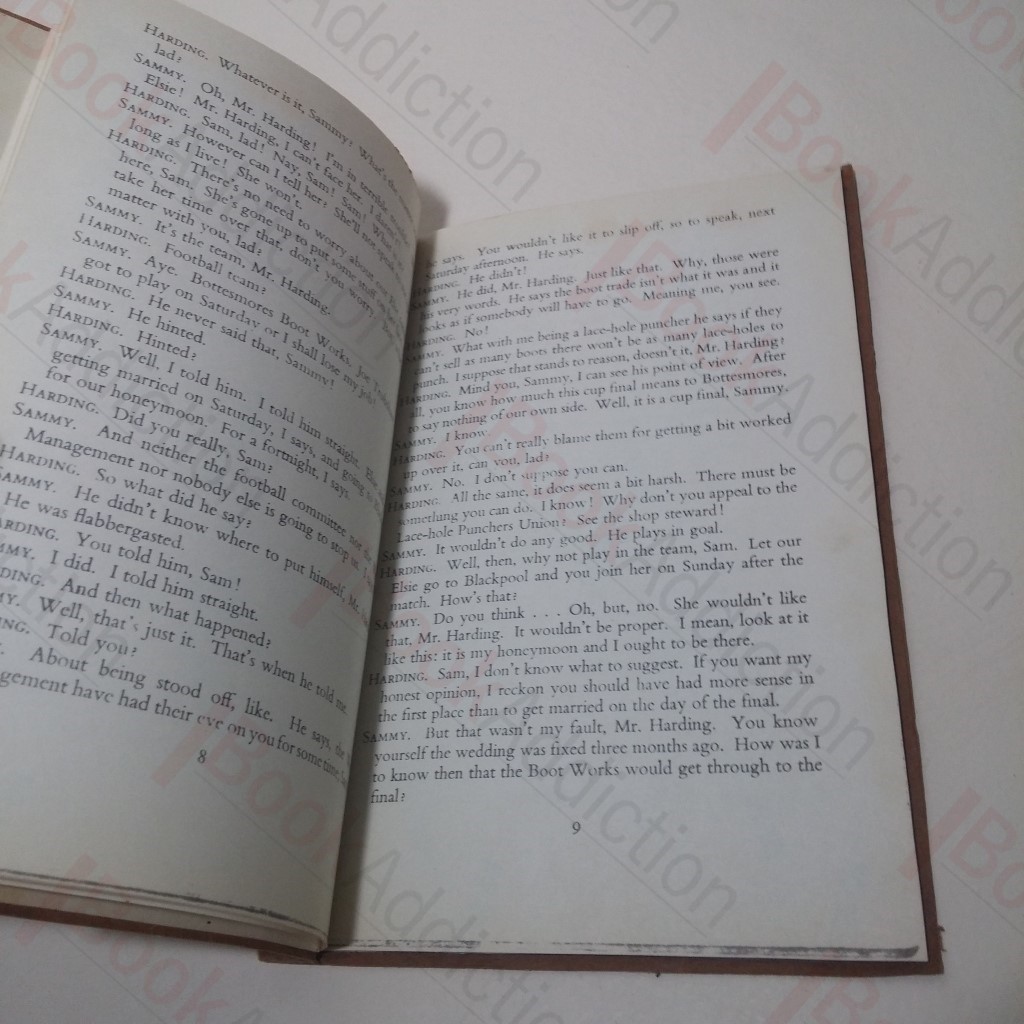 HARDING. Whatever is it, Sammy? What's the
lad?
SAMMY. Oh, Mr. Harding! I'm in terrible
Elsie! Mr. Harding, I can't face her. I
HARDING. Sam, lad! Nay, Sam! Sam!
SAMMY. However can I tell her? She'll not speak
long as I live! She won't.
HARDING. There's no need to worry about our
here, Sam. She's gone up to put some stuff
take her time over that, don't you worry.
matter with you, lad?
SAMMY. It's the team, Mr. Harding.
HARDING. Football team?
SAMMY. Aye. Bottesmores Boot Works. Joe
got to play on Saturday or I shall lose my job!
HARDING. He never said that, Sammy!
SAMMY. He hinted.
HARDING. Hinted?
SAMMY. Well, I told him. I told him straight.
getting married on Saturday, I says, and going to
for our honeymoon. For a fortnight, I says.
HARDING. Did you really, Sam?
SAMMY. And neither the football committee nor the
Management nor nobody else is going to stop
HARDING. So what did he say?
SAMMY. He didn't know where to put himself, Mr.
He was flabbergasted.
HARDING. You told him, Sam!
I did. I told him straight.
And then what happened?
Well, that's just it. That's when he told me.
Told you?
About being stood off, like. He says, the
have had their eye on you for some time,
8
he says. You wouldn't like it to slip off, so to speak, next
Saturday afternoon. He says.
HARDING. He didn't!
SAMMY. He did, Mr. Harding. Just like that. Why, those were
his very words. He says the boot trade isn't what it was and it
looks as if somebody will have to go. Meaning me, you see.
HARDING. No!
SAMMY. What with me being a lace-hole puncher he says if they
can't sell as many boots there won't be as many lace-holes to
punch. I suppose that stands to reason, doesn't it, Mr. Harding?
HARDING. Mind you, Sammy, I can see his point of view. After
all, you know how much this cup final means to Bottesmores,
to say nothing of our own side. Well, it is a cup final, Sammy.
SAMMY. I know.
HARDING. You can't really blame them for getting a bit worked
up over it, can you, lad?
SAMMY. No. I don't suppose you can.
HARDING. All the same, it does seem a bit harsh. There must be
something you can do. I know! Why don't you appeal to the
Lace-hole Punchers Union? See the shop steward!
SAMMY. It wouldn't do any good. He plays in goal.
HARDING. Well, then, why not play in the team, Sam. Let our
Elsie go to Blackpool and you join her on Sunday after the
match. How's that?
SAMMY. Do you think . . . Oh, but, no. She wouldn't like
that, Mr. Harding. It wouldn't be proper. I mean, look at it
like this: it is my honeymoon and I ought to be there.
HARDING. Sam, I don't know what to suggest. If you want my
honest opinion, I reckon you should have had more sense in
the first place than to get married on the day of the final.
SAMMY. But that wasn't my fault, Mr. Harding. You know
yourself the wedding was fixed three months ago. How was I
to know then that the Boot Works would get through to the
final?
9